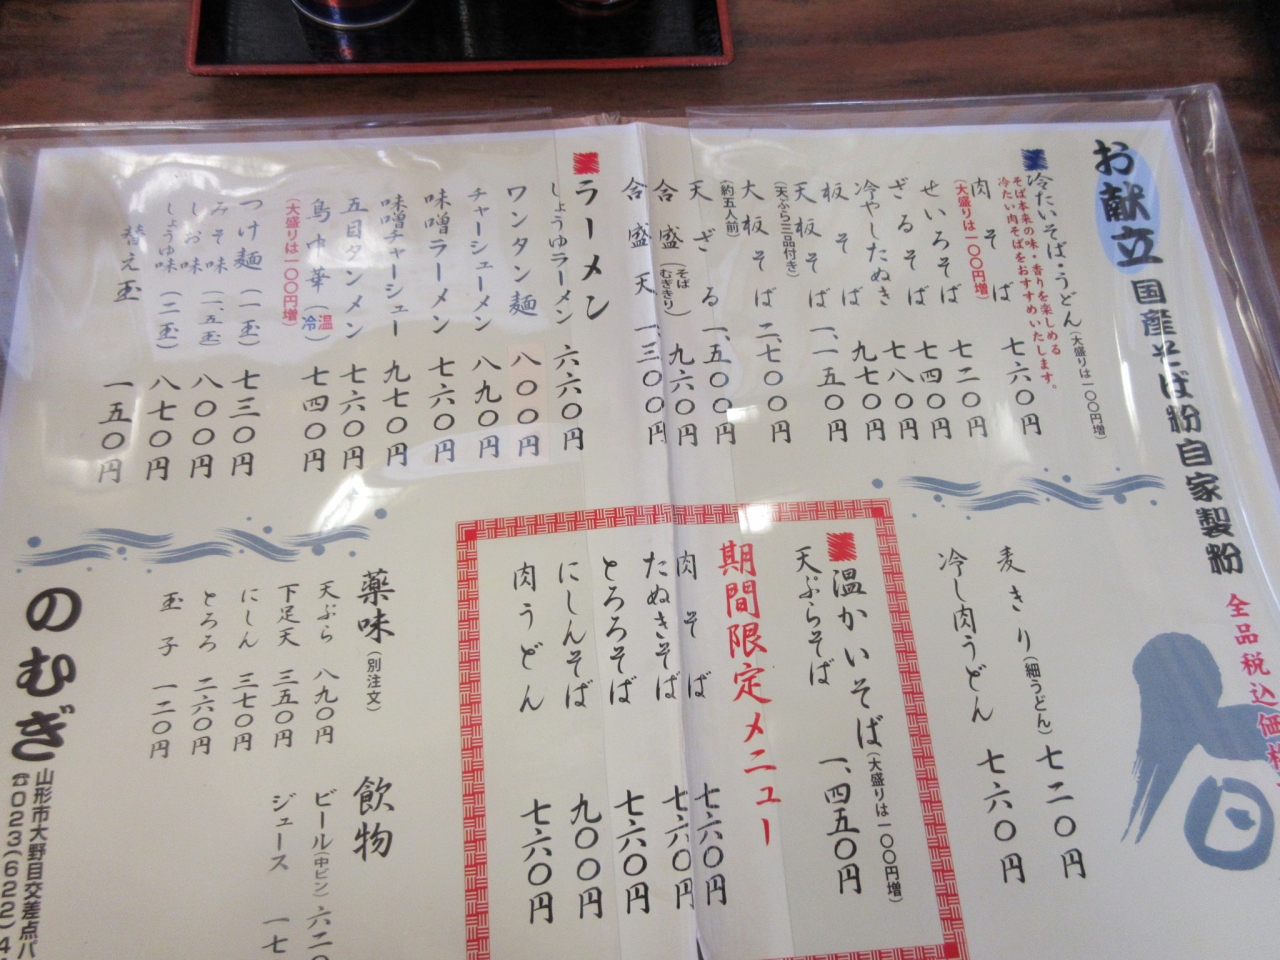 お献立
国産そば粉自家製粉
全品税込価格
冷たいそば・うどん(大盛りは一〇〇円増)
そば本来の味・香りを楽しめる
冷たい肉そばをおすすめいたします。
肉そば 七六〇円
(大盛りは一〇〇円増)
せいろそば 七四〇円
ざるそば 七八〇円
冷やしたぬき 九七〇円
板そば
天板そば 一、一五〇円
(天ぷら三品付き)
大板そば 二、七〇〇円
(約五人前)
天ざる 一、五〇〇円
合盛(そば むぎきり) 九六〇円
合盛天 一、三〇〇円
ラーメン
しょうゆラーメン 六六〇円
ワンタン麺 八〇〇円
チャーシューメン 八九〇円
味噌ラーメン 七六〇円
味噌チャーシュー 九七〇円
五目タンメン 七六〇円
鳥中華(温 冷) 七四〇円
(大盛りは一〇〇円増)
つけ麺(一玉) 七三〇円
みそ味(一、五玉) 八〇〇円
しお味
しょうゆ味(二玉) 八七〇円
替え玉 一五〇円
麦きり(細うどん) 七二〇円
冷し肉うどん 七六〇円
温かいそば(大盛りは一〇〇円増)
天ぷらそば 一、四五〇円
期間限定メニュー
肉そば 七六〇円
たぬきそば 七六〇円
とろろそば 七六〇円
にしんそば 九〇〇円
肉うどん 七六〇円
薬味(別注文)
天ぷら 八九〇円
下足天 三五〇円
にしん 三七〇円
とろろ 二六〇円
玉子 一二〇円
飲物
ビール(中ビン) 六二〇
ジュース 一七
のむぎ
山形市大野目交差点バ
☎023(622)4